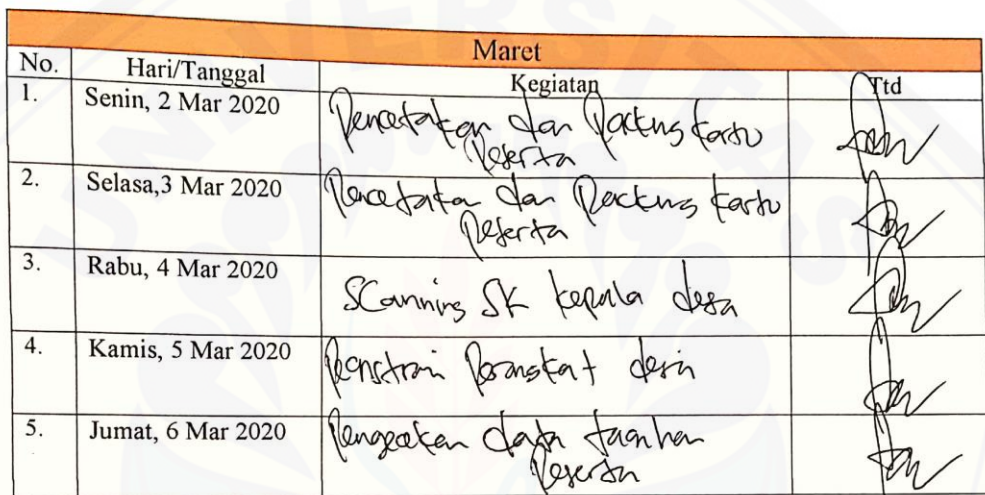 UNIVERSITAS
Maret
No. Hari/Tanggal Kegiatan Ttd
1. Senin, 2 Mar 2020 Pencetakan dan Packing kartu
Peserta
2. Selasa,3 Mar 2020 Pencetakan dan Packing kartu
Peserta
3. Rabu, 4 Mar 2020 Scanning SK kepala desa
4. Kamis, 5 Mar 2020 Perangkat desa
5. Jumat, 6 Mar 2020 Pengecekan data
Peserta